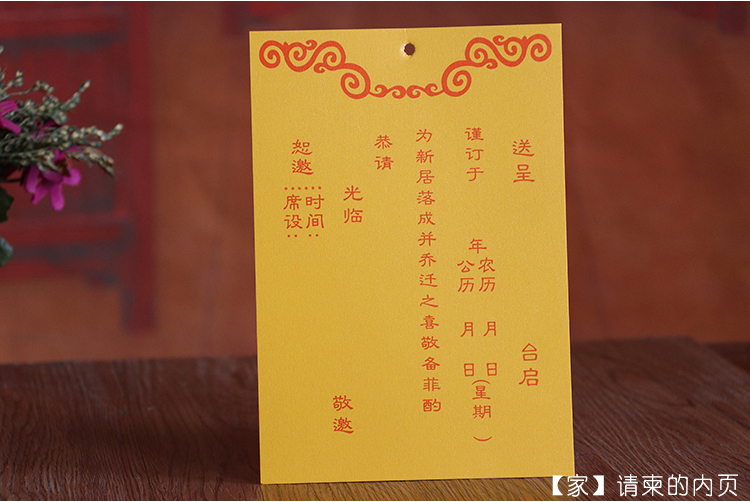 送呈 台启
谨订于 年 农历 月 日
公历 月 日(星期 )
为新居落成并乔迁之喜敬备菲酌
恭请
光临
敬邀
恕邀
时间
席设
【家】请柬的内页